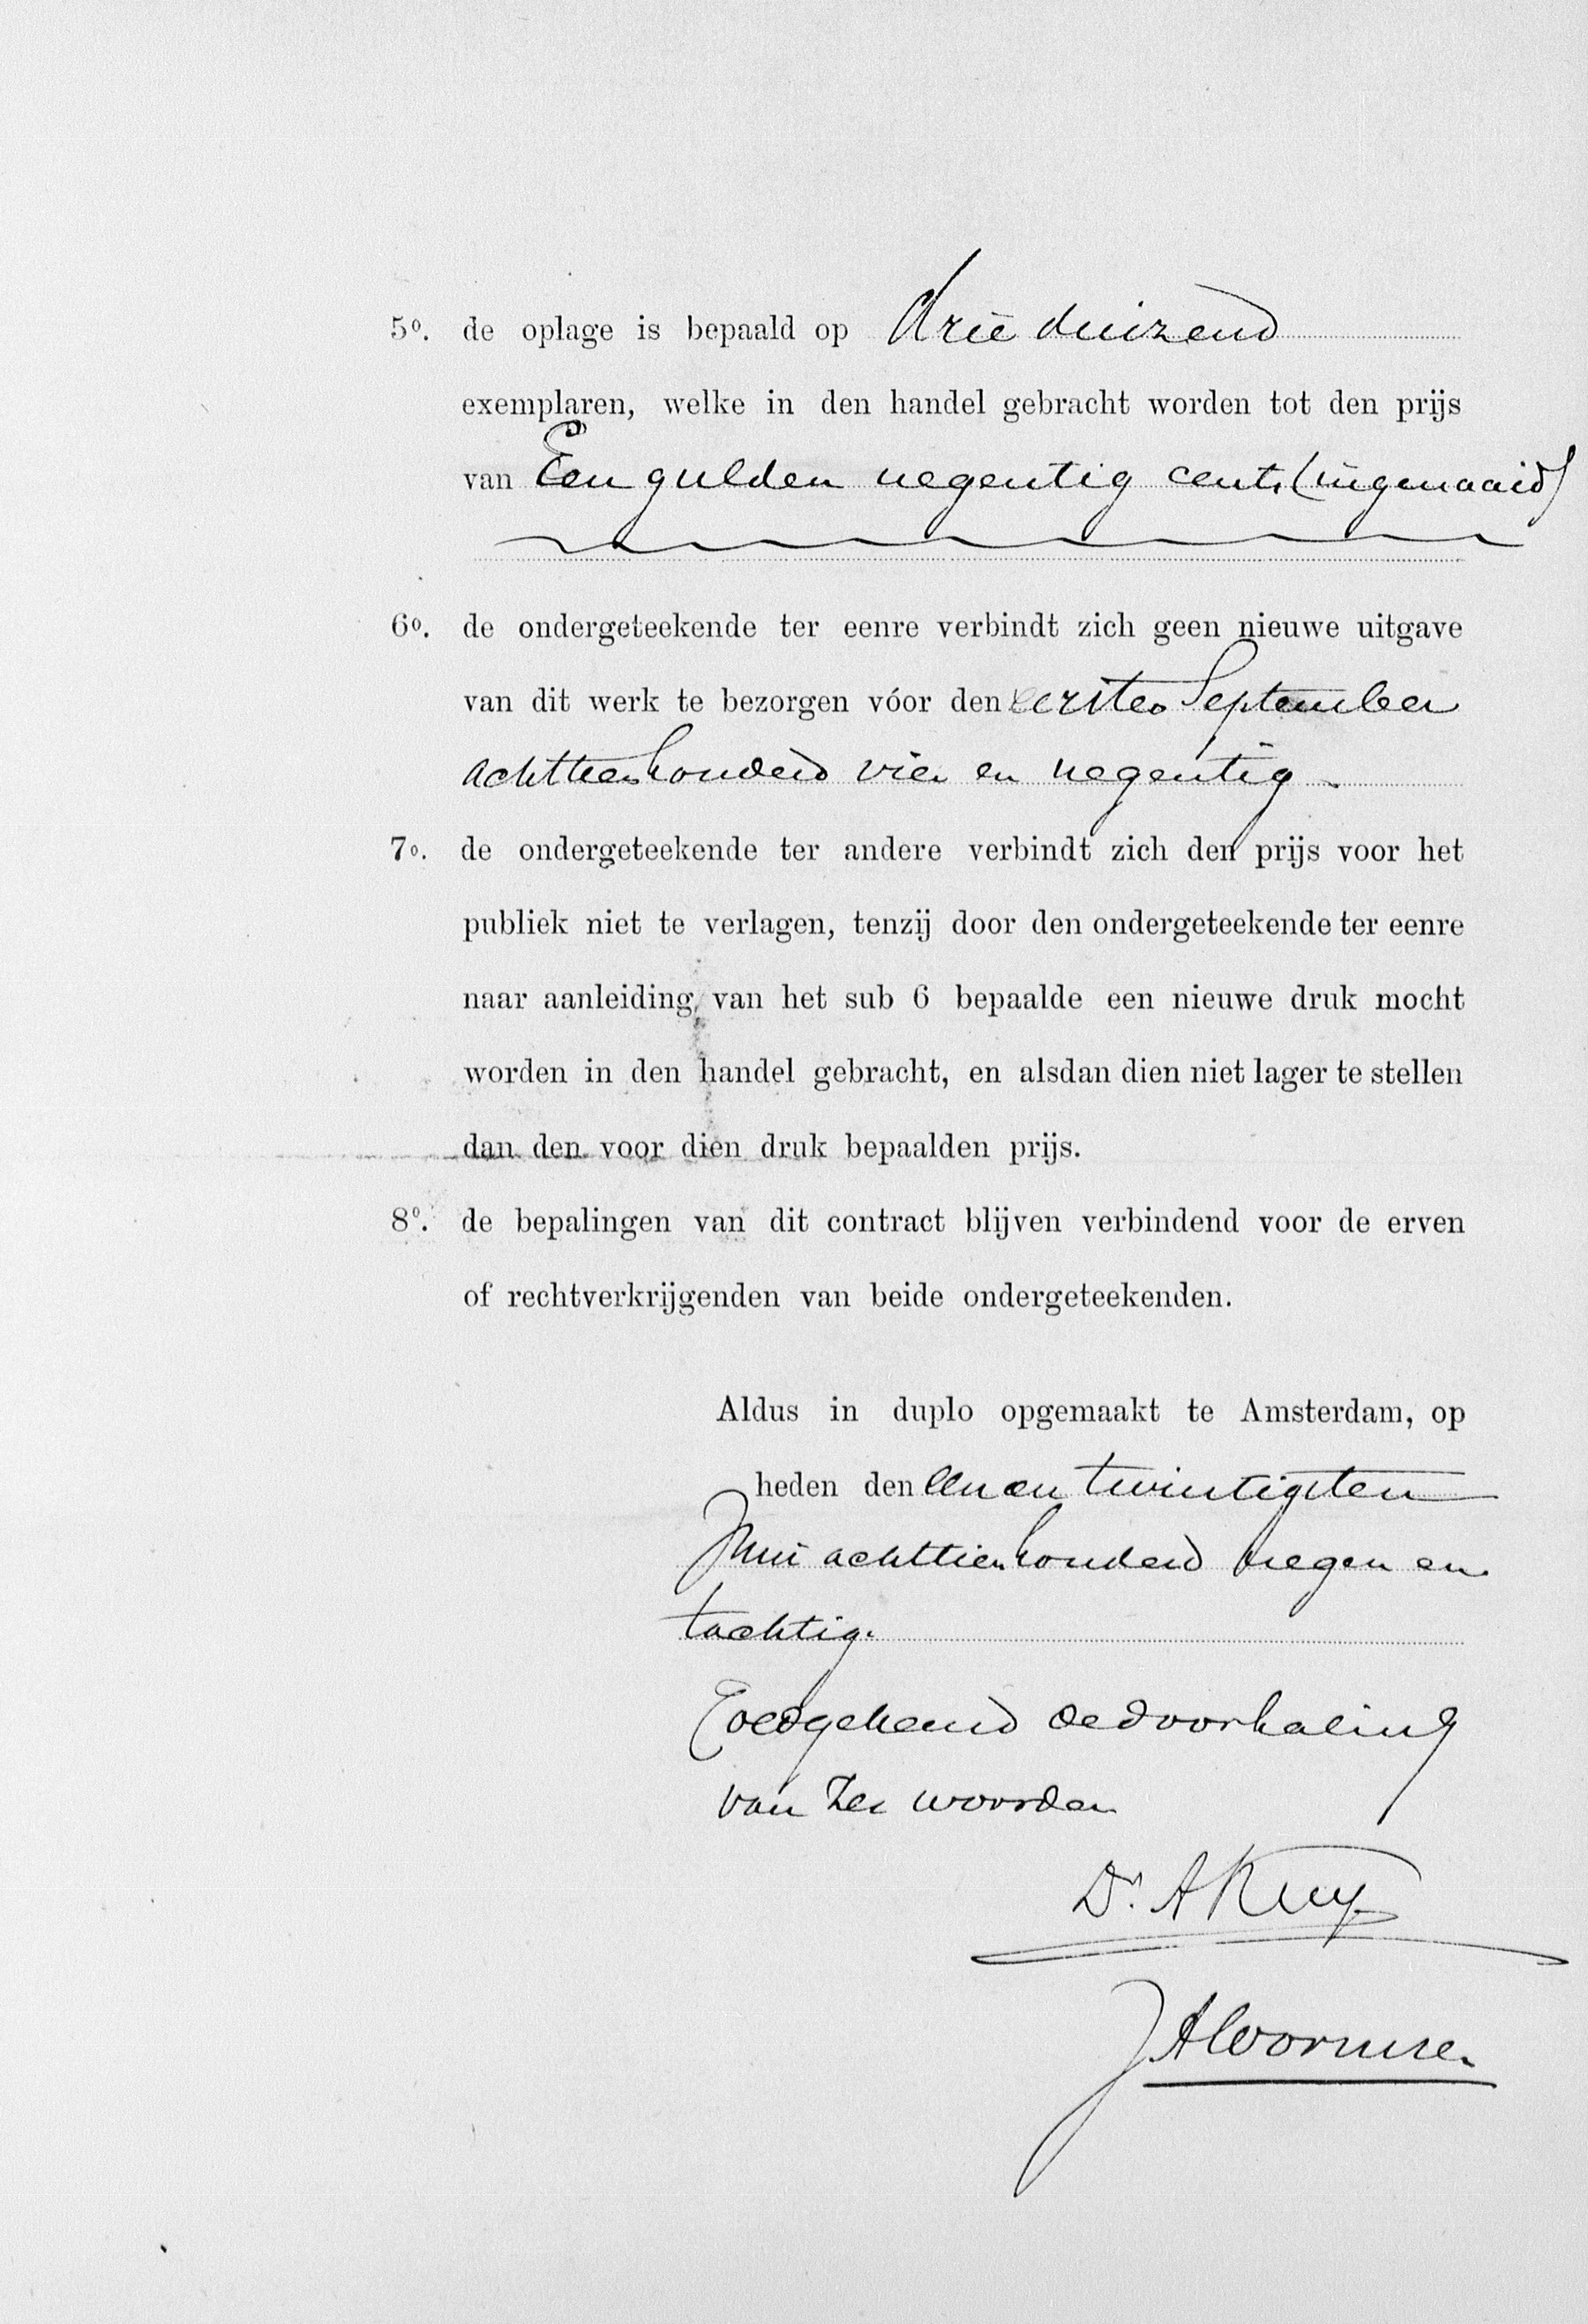 5º. de oplage is bepaald op drie duizend
exemplaren, welke in den handel gebracht worden tot den prijs
van Een gulden negentig cents (ingenaaid)
6º. de ondergeteekende ter eenre verbindt zich geen nieuwe uitgave
van dit werk te bezorgen vóor den eersten September
achttienhonderd vier en negentig.
7º. de ondergeteekende ter andere verbindt zich den prijs voor het
publiek niet te verlagen, tenzij door den ondergeteekende ter eenre
naar aanleiding van het sub 6 bepaalde een nieuwe druk mocht
worden in den handel gebracht, en alsdan dien niet lager te stellen
dan den voor dien druk bepaalden prijs.
8º. de bepalingen van dit contract blijven verbindend voor de erven
of rechtverkrijgenden van beide ondergeteekenden.
Aldus in duplo opgemaakt te Amsterdam, op
heden den een en twintigsten
Juni achttienhonderd negen en
tachtig.
Goedgekeurd de doorhaling
van zes woorden
Dr. A Kuyper
J. A Wormser